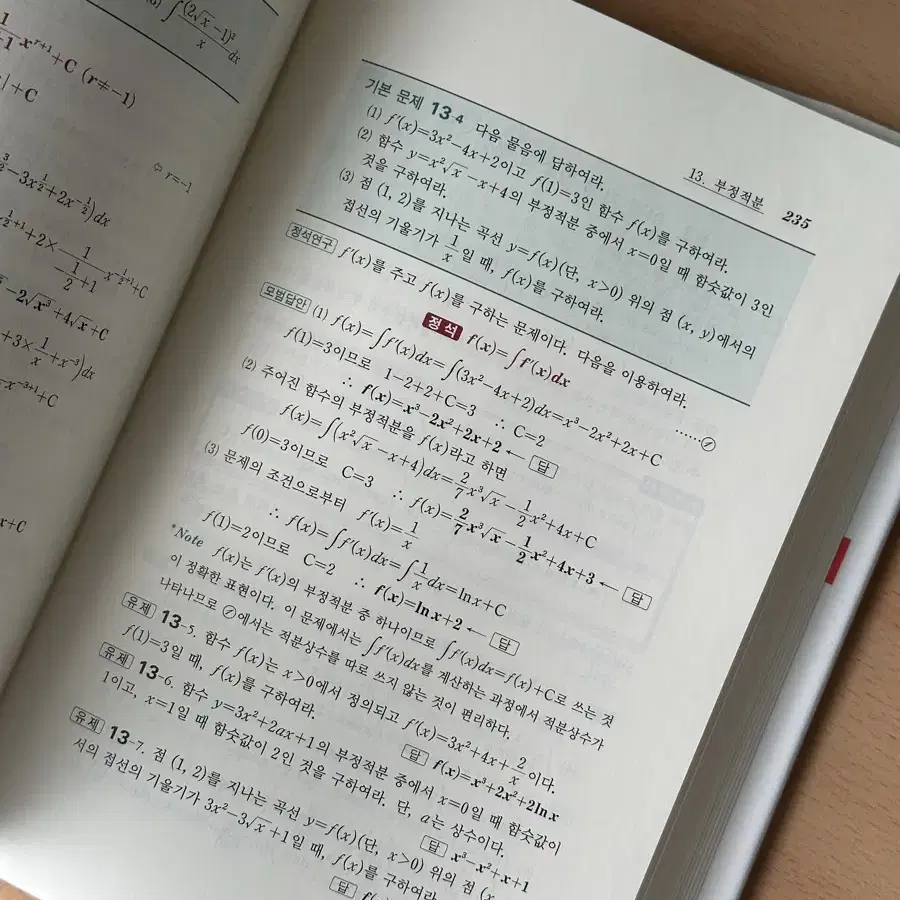 ∫(2√x−1)²/x dx
x^{r+1}+C (r≠−1)
|+C
⇦ r=−1
−3x^{1/2}+2x^{−1/2})dx
+2×1/(−1/2+1) x^{−1/2+1}+C
−2√x³+4√x+C
+3×1/x+x^{−3})dx
x^{−3+1}+C
x+C
13. 부정적분 235
기본 문제 13-4 다음 물음에 답하여라.
(1) f′(x)=3x²−4x+2이고 f(1)=3인 함수 f(x)를 구하여라.
(2) 함수 y=x²√x−x+4의 부정적분 중에서 x=0일 때 함숫값이 3인
것을 구하여라.
(3) 점 (1, 2)를 지나는 곡선 y=f(x)(단, x>0) 위의 점 (x, y)에서의
접선의 기울기가 1/x일 때, f(x)를 구하여라.
정석연구 f′(x)를 주고 f(x)를 구하는 문제이다. 다음을 이용하여라.
정석 f(x)=∫f′(x)dx
모범답안 (1) f(x)=∫f′(x)dx=∫(3x²−4x+2)dx=x³−2x²+2x+C ……⊘
f(1)=3이므로 1−2+2+C=3 ∴ C=2
∴ f(x)=x³−2x²+2x+2 ← 답
(2) 주어진 함수의 부정적분을 f(x)라고 하면
f(x)=∫(x²√x−x+4)dx=2/7x³√x−1/2x²+4x+C
f(0)=3이므로 C=3 ∴ f(x)=2/7x³√x−1/2x²+4x+3 ← 답
(3) 문제의 조건으로부터 f′(x)=1/x
∴ f(x)=∫f′(x)dx=∫1/x dx=ln x+C
f(1)=2이므로 C=2 ∴ f(x)=ln x+2 ← 답
*Note f(x)는 f′(x)의 부정적분 중 하나이므로 ∫f′(x)dx=f(x)+C로 쓰는 것
이 정확한 표현이다. 이 문제에서는 ∫f′(x)dx를 계산하는 과정에서 적분상수가
나타나므로 ⊘에서는 적분상수를 따로 쓰지 않는 것이 편리하다.
유제 13-5. 함수 f(x)는 x>0에서 정의되고 f′(x)=3x²+4x+2/x이다.
f(1)=3일 때, f(x)를 구하여라. 답 f(x)=x³+2x²+2ln x
유제 13-6. 함수 y=3x²+2ax+1의 부정적분 중에서 x=0일 때 함숫값이
1이고, x=1일 때 함숫값이 2인 것을 구하여라. 단, a는 상수이다.
답 x³−x²+x+1
유제 13-7. 점 (1, 2)를 지나는 곡선 y=f(x)(단, x>0) 위의 점 (x,
서의 접선의 기울기가 3x²−3√x+1일 때, f(x)를 구하여라
답